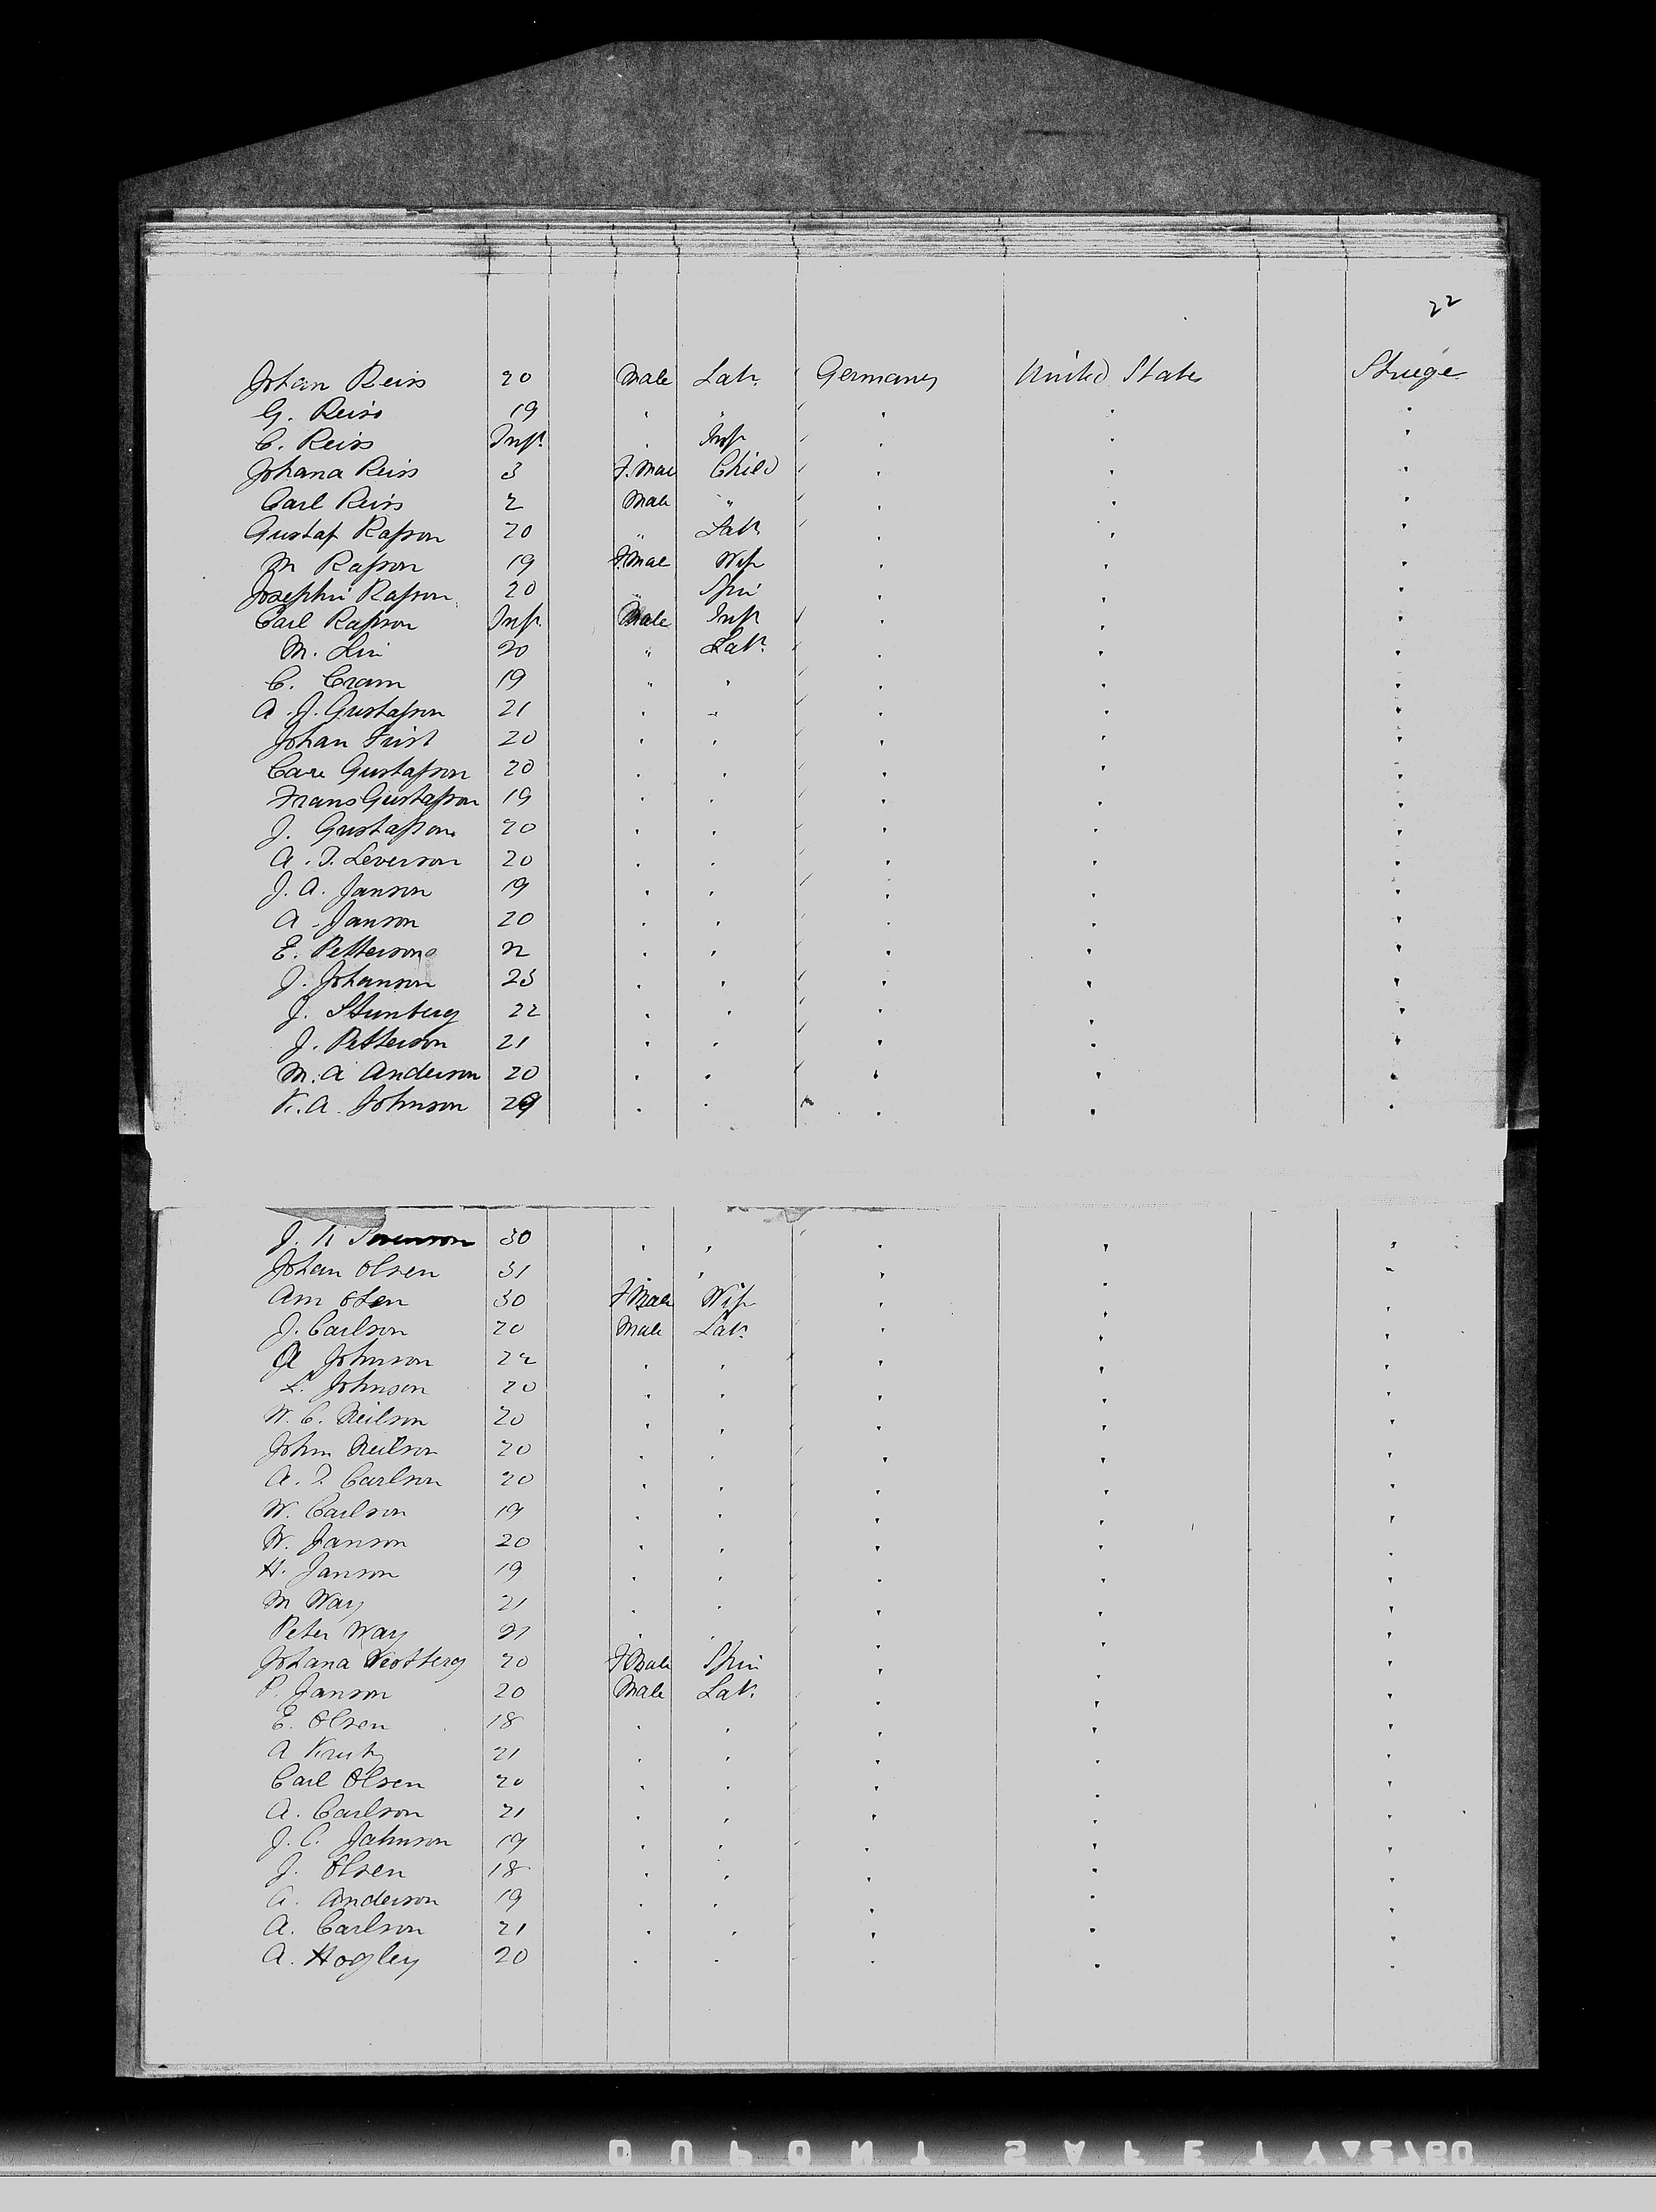 22
Johan Reiss 20 Male Lab. Germany United States Steerge
G. Reiss 19 . " . . .
C. Reiss Inft. . Inft . . .
Johana Reiss 3 F.Mal Child . . .
Carl Reiss 2 Male " . . .
Gustaf Rasson 20 " Lab. . . .
M Rasson 19 F.Mal Wife . . .
Josephi Rasson 20 " Spin . . .
Carl Rasson Inft. Male Inft . . .
M. Lin 20 " Lab. . . .
C. Cram 19 " . . . .
A. J. Gustafson 21 . " . . .
Johan Frist 20 . . . . .
Carl Gustafson 20 . . . . .
Frans Gustafson 19 . . . . .
J. Gustafson 20 . . . . .
A. T. Leverson 20 . . . . .
J. A. Janson 19 . . . . .
A. Janson 20 . . . . .
E. Petterson 22 . . . . .
J. Johanson 23 . . . . .
J. Sternberg 22 . . . . .
J. Petterson 21 . . . . .
M. A Anderson 20 . . . . .
K. A. Johnson 29 . . . . .
J. K Swenson 30 . . . . .
Johan Olsen 31 . . . . .
Am Olsen 30 F Male Wife . . .
J. Carlson 20 Male Lab. . . .
A Johnson 22 . . . . .
L. Johnson 20 . . . . .
W. C. Neilson 20 . . . . .
John Neilson 20 . . . . .
A. T. Carlson 20 . . . . .
W. Carlson 19 . . . . .
W. Janson 20 . . . . .
H. Janson 19 . . . . .
M Way 21 . . . . .
Peter Way 21 . . . . .
Johana 20 F Male Spin . . .
P. Janson 20 Male Lab. . . .
E. Olsen 18 . . . . .
A 21 . . . . .
Carl Olsen 20 . . . . .
A. Carlson 21 . . . . .
J. C. Johnson 19 . . . . .
J. Olsen 18 . . . . .
A. Anderson 19 . . . . .
A. Carlson 21 . . . . .
A. Hogley 20 . . . . .
DUPONT SAFETY